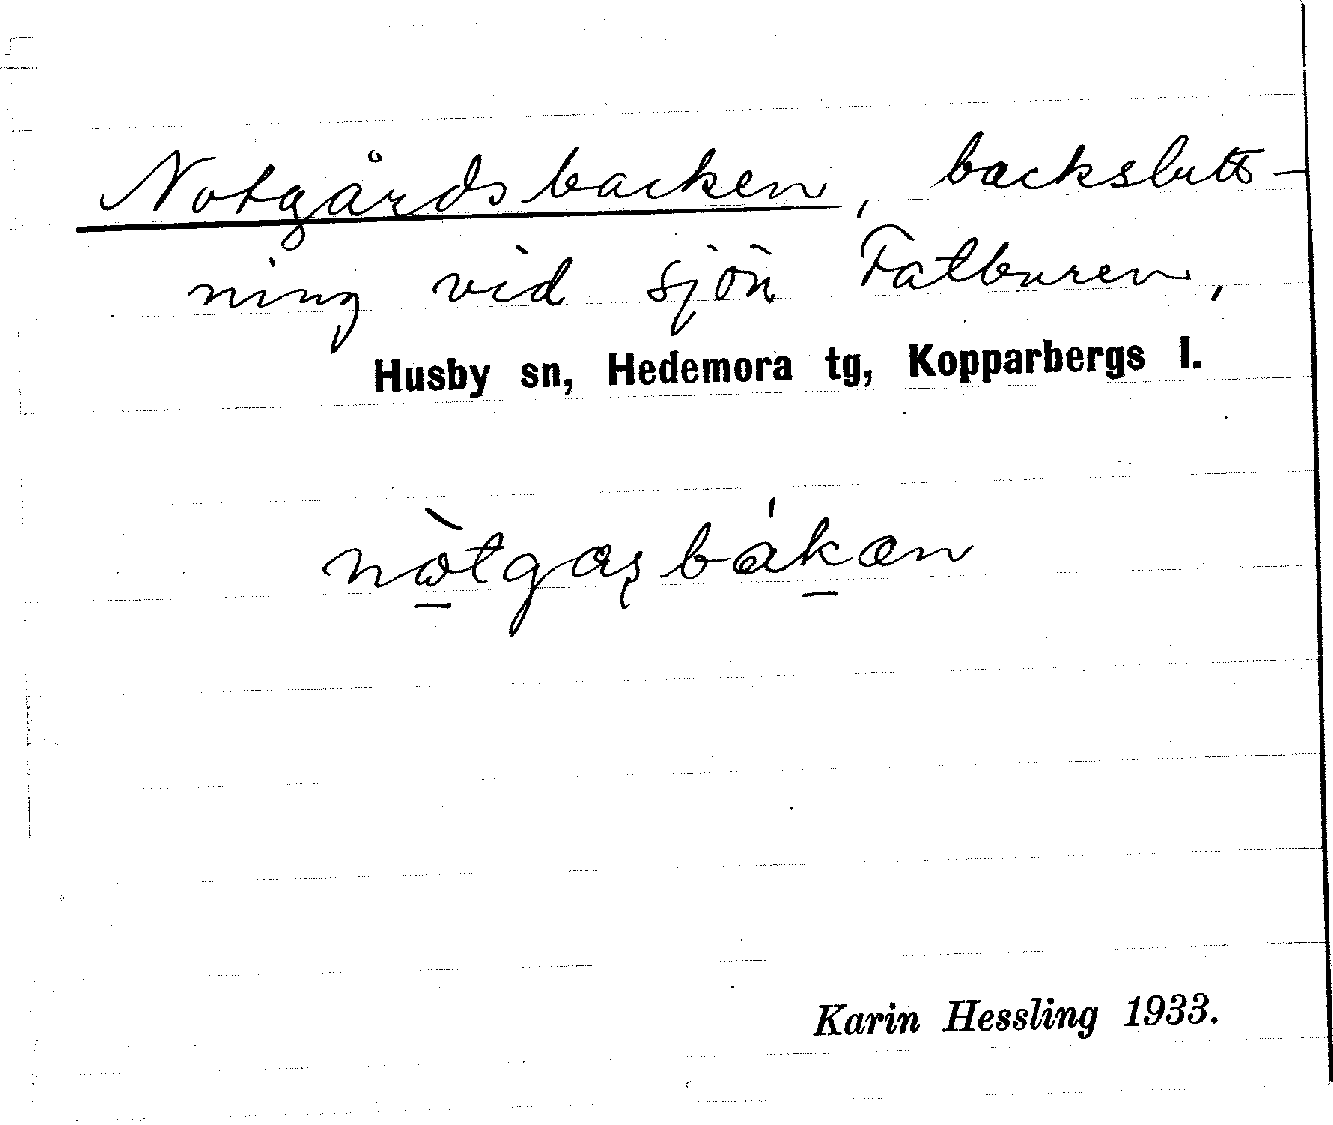 Notgårdsbacken, backslutt-
ning vid sjön Fatburen,
Husby sn, Hedemora tg, Kopparbergs l.
Karin Hessling 1933.